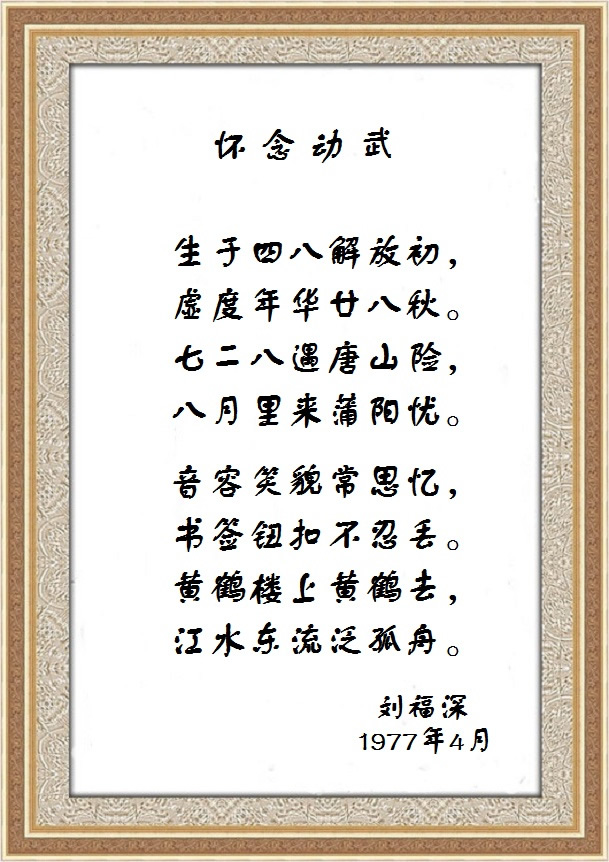 怀念动武
生于四八解放初，
虚度年华廿八秋。
七二八遇唐山险，
八月里来蒲阳忧。
音容笑貌常思忆，
书签钮扣不忍丢。
黄鹤楼上黄鹤去，
江水东流泛孤舟。
刘福深
1977年4月